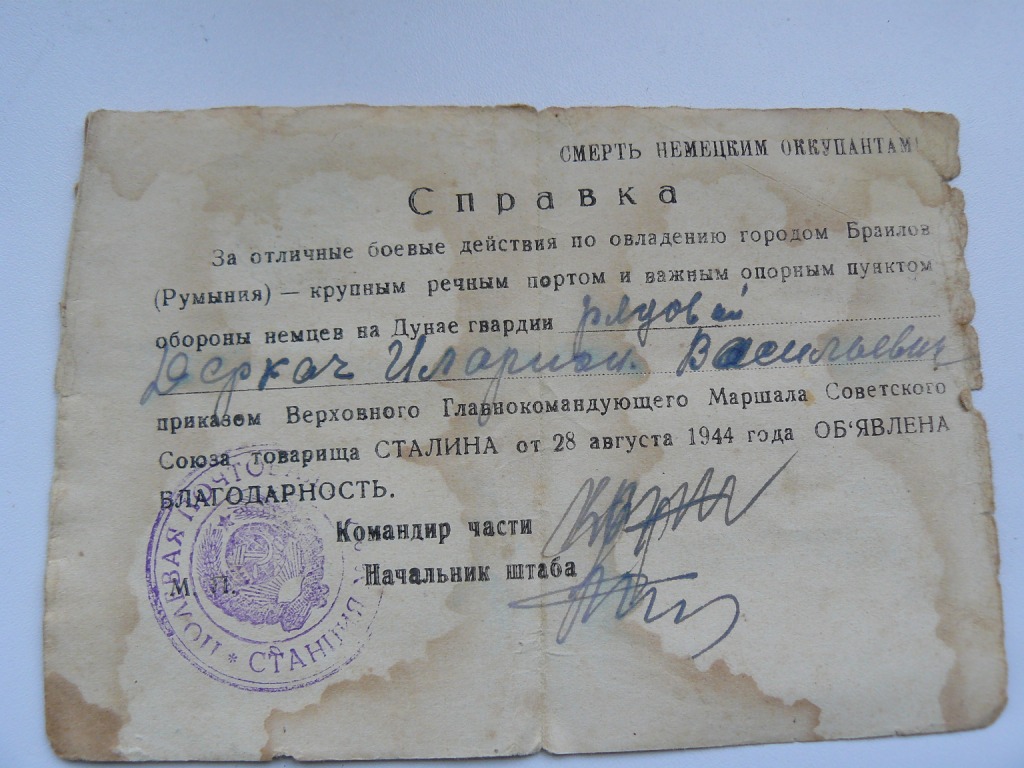 СМЕРТЬ НЕМЕЦКИМ ОККУПАНТАМ!
Справка
За отличные боевые действия по овладению городом Браилов
(Румыния) — крупным речным портом и важным опорным пунктом
обороны немцев на Дунае гвардии рядовой
Деркач Иларион Васильевич
приказом Верховного Главнокомандующего Маршала Советского
Союза товарища СТАЛИНА от 28 августа 1944 года ОБ‘ЯВЛЕНА
БЛАГОДАРНОСТЬ.
Командир части
Начальник штаба
М. П.
ПОЛЕВАЯ ПОЧТОВАЯ СТАНЦИЯ *